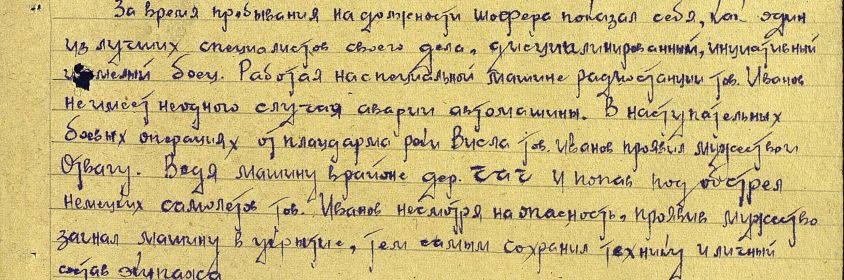 За время пребывания на должности шофера показал себя, как один
из лучших специалистов своего дела, дисциплинированный, инициативный
и смелый боец. Работая на специальной машине радиостанции тов. Иванов
не имеет неодного случая аварии автомашины. В наступательных
боевых операциях от плацдарма реки Висла тов. Иванов проявил мужество и
Отвагу. Ведя машину в районе дер. и попав под обстрел
немецких самолетов тов. Иванов несмотря на опасность, проявив мужество
загнал машину в укрытие, тем самым сохранил технику и личный
состав экипажа